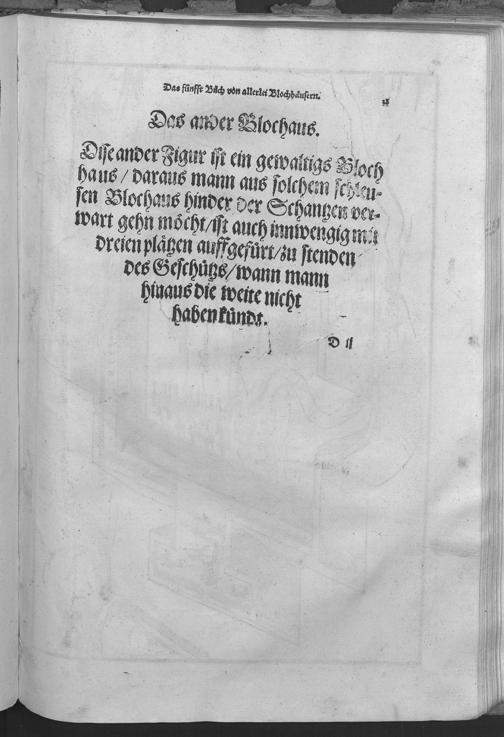 Das fünfft Büch von allerlei Blochhäusern.
Das ander Blochaus.
Dise ander Figur ist ein gewaltigs Bloch
haus / daraus mann aus solchem schleu-
sen Blochaus hinder der Schantzen ver-
wart gehn möcht / ist auch innwengig mit
dreien plätzen auffgefürt / zu stenden
des Geschütz / wann mann
hinaus die weite nicht
haben kündt.
D ij